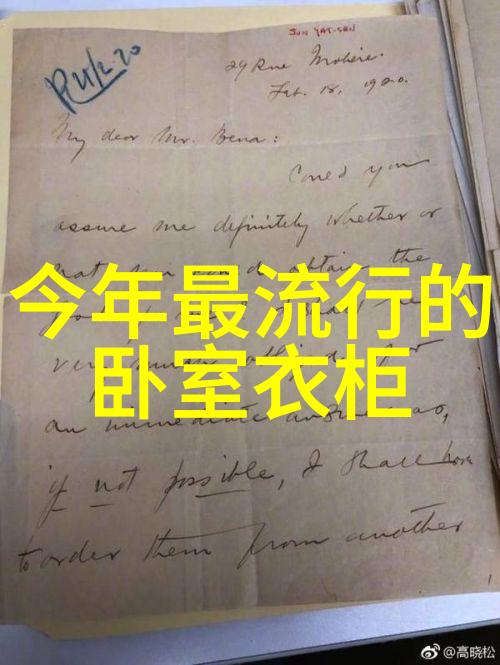 SUN YAT-SEN
R 21/2.20
29 Rue Molière.
Feb. 18, 1920.
My dear Mr. Bena:
Could you
assure me definitely whether or
not you could obtain the
very
an immediate answer as,
if not possible, I shall have
to order them from another
今年最流行的
卧室衣柜
@高晓松